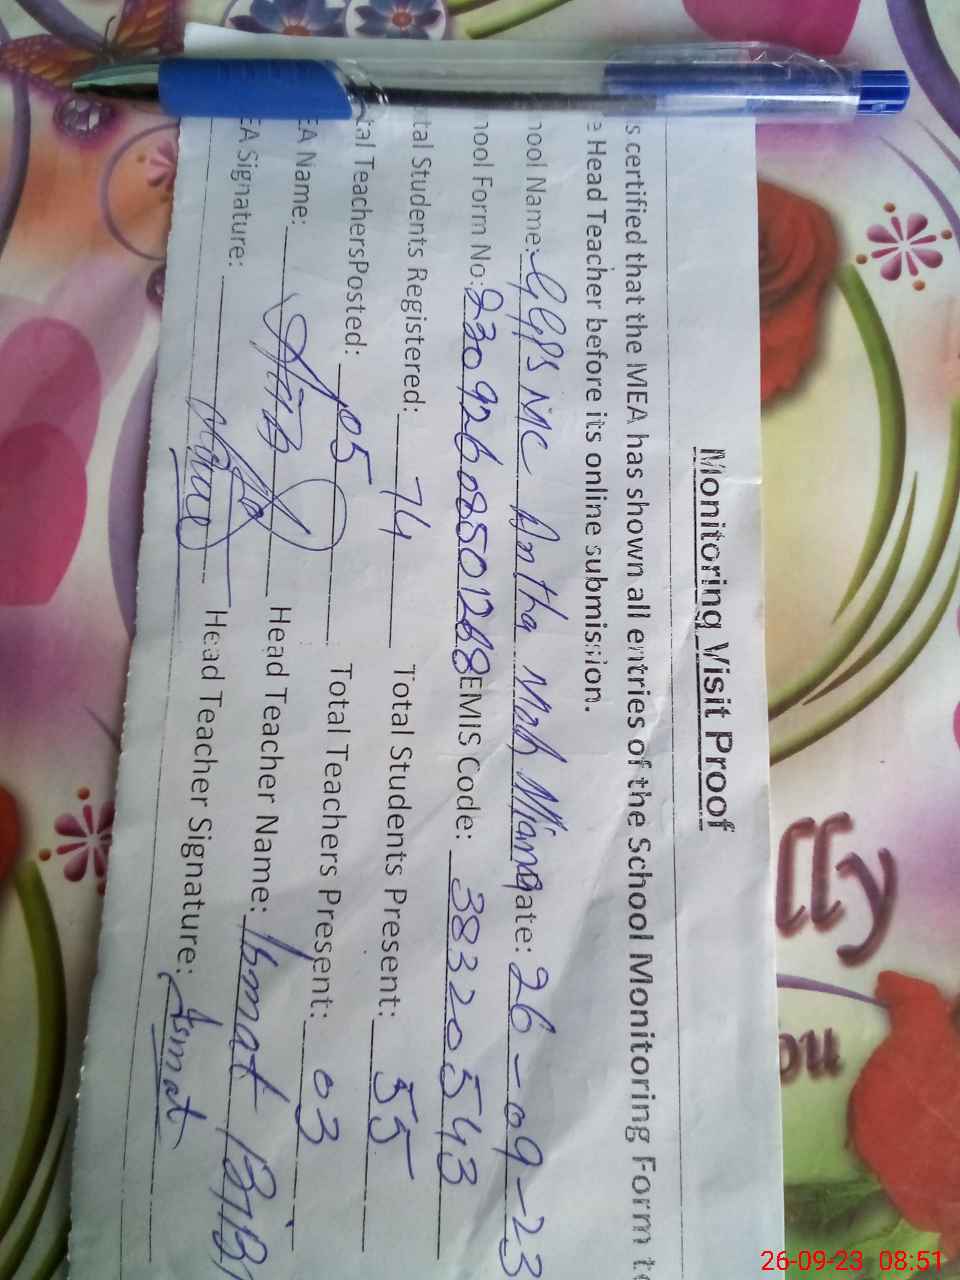 Monitoring Visit Proof
s certified that the MEA has shown all entries of the School Monitoring Form t
e Head Teacher before its online submission.
hool Name: GGPS MC Antha Moh Miana ate: 26-09-23
hool Form No: 23092608501268 EMIS Code: 38320543
tal Students Registered: 74 Total Students Present: 55
tal TeachersPosted: 05 Total Teachers Present: 03
EA Name: Head Teacher Name: Ismat BiBi
EA Signature: Head Teacher Signature: Asmat
lly
ou
26-09-23 08:51